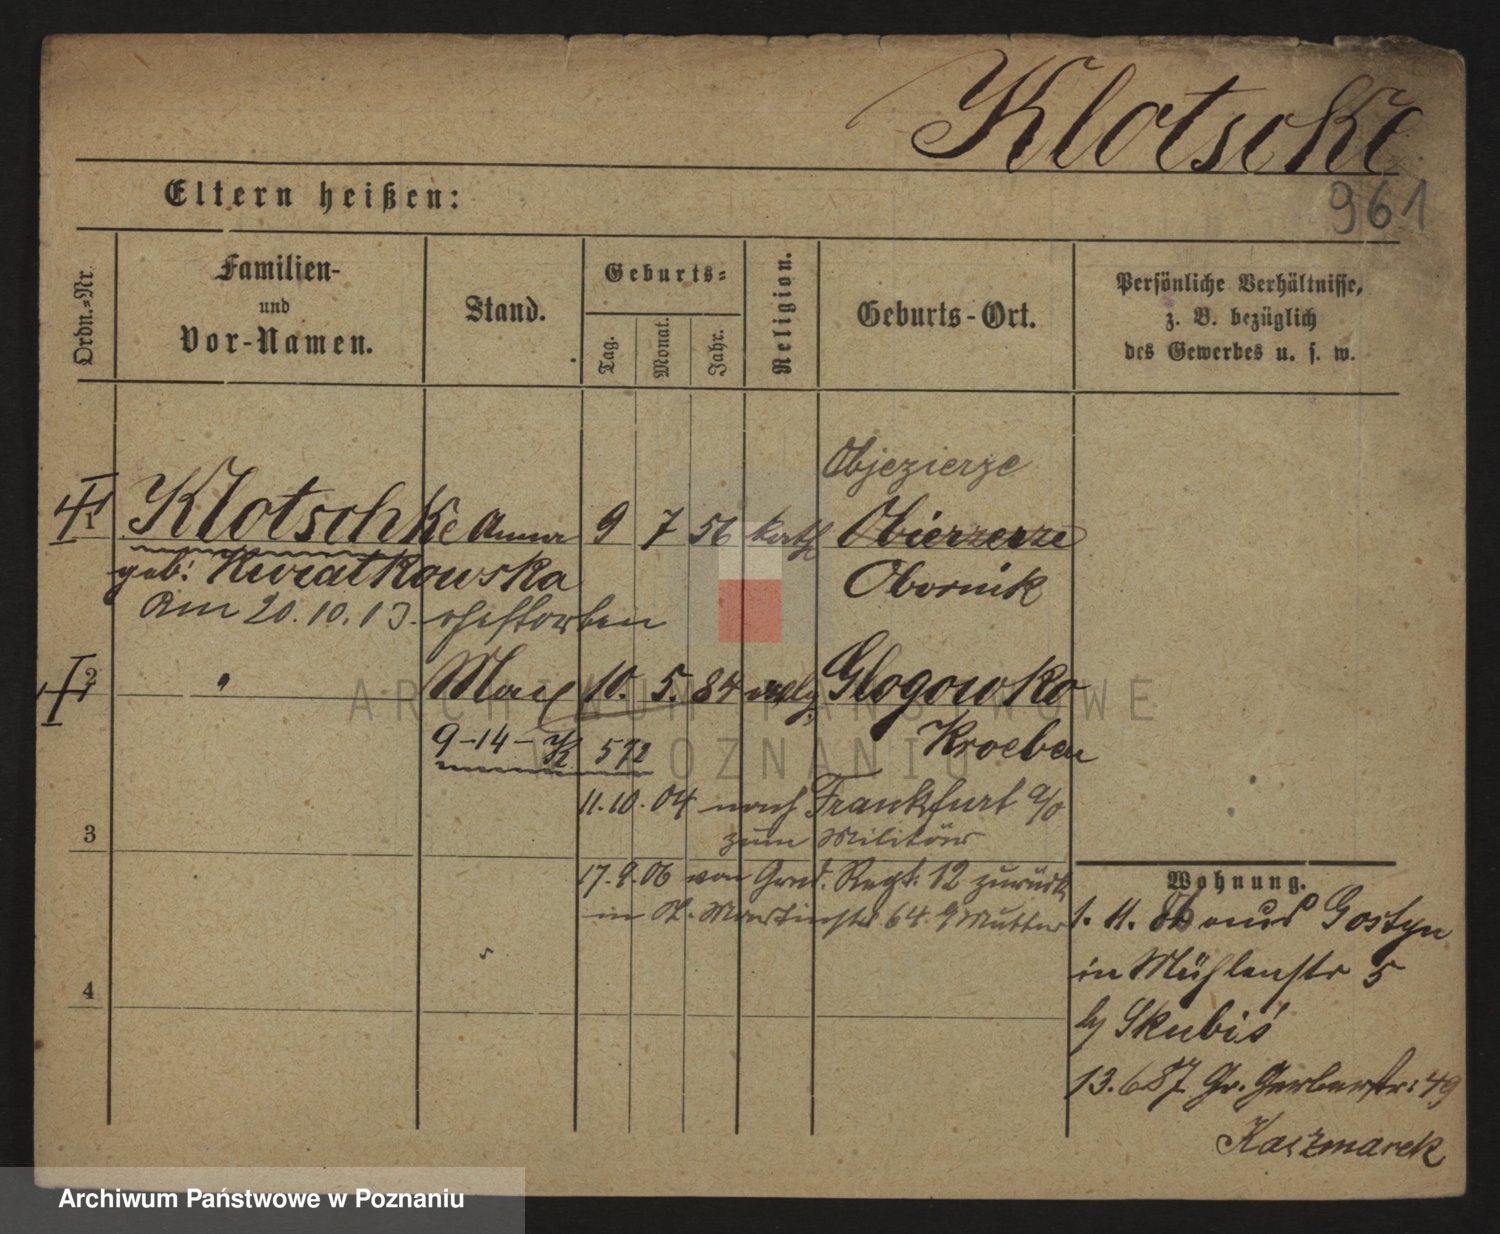 Klotscke
961
Eltern heißen:
Ordn.-Nr.
Familien- und Vor-Namen.
Stand.
Geburts-
Tag.
Monat.
Jahr.
Religion.
Geburts-Ort.
Persönliche Verhältnisse,
z. B. bezüglich
des Gewerbes u. s. w.
Objezierze
1 Klotschke Anna 9 7 56 kath Obierzerze
geb. Kwiatkowska Obornik
Am 20.10.13. verstorben
2 " Max 10. 5. 84 Glogowko
Kroeben
9-14-K 572
11.10.04 nach Frankfurt a/O
3 zum Militär
17.9.06 von Gren. Regt. 12 zurück
in St. Martinstr 64 Mutter
4
Wohnung.
1. 11. 86 aus Gostyn
in Mühlenstr 5
by Skubis
13.6 87 Gr. Gerberstr: 49
Kaszmarek
ARCHIWUM PAŃSTWOWE
W POZNANIU
Archiwum Państwowe w Poznaniu